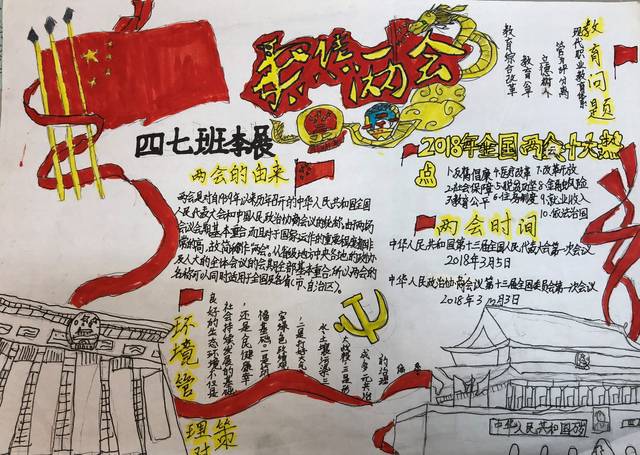 聚焦两会
四七班李展
两会的由来
两会是对自1959年以来历年召开的中华人民共和国全国
人民代表大会和中国人民政治协商会议的统称。由于两场
会议会期基本重合,而且对于国家运作的重要程度都非
常的高,故简称作"两会"。从省级地方到中央,各地的政协
及人大的全体会议的会期全部基本重合,所以两会的
名称可以同时适用于全国及各省(市、自治区)。
教育问题
现代职业教育体系
管办评分离
立德树人
教育公平
教育综合改革
2018年全国两会十大热
点
1.反腐倡廉 4.医疗改革 7.改革开放
2.社会保障 5.脱贫攻坚 8.金融风险
3.教育公平 6.住房制度 9.就业收入
10.依法治国
两会时间
中华人民共和国第十三届全国人民代表大会第一次会议
2018年3月5日
中华人民政治协商会议第十三届全国委员会第一次会议
2018年3月3日
环境管
理对策
良好的生态环境不但是
社会持续发展的基础
还是人民健康幸
福
水土壤污染三
中华人民共和国万